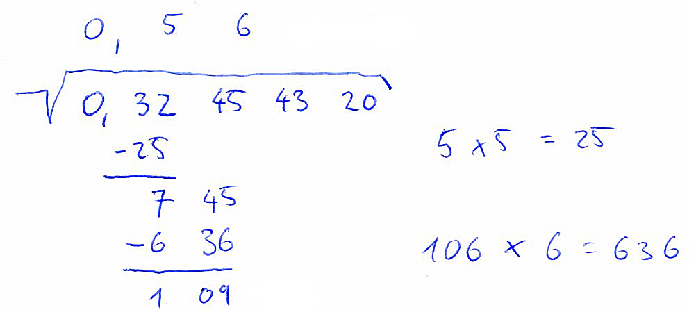 0, 5 6
√0, 32 45 43 20
-25
5 × 5 = 25
7 45
-6 36
106 × 6 = 636
1 09